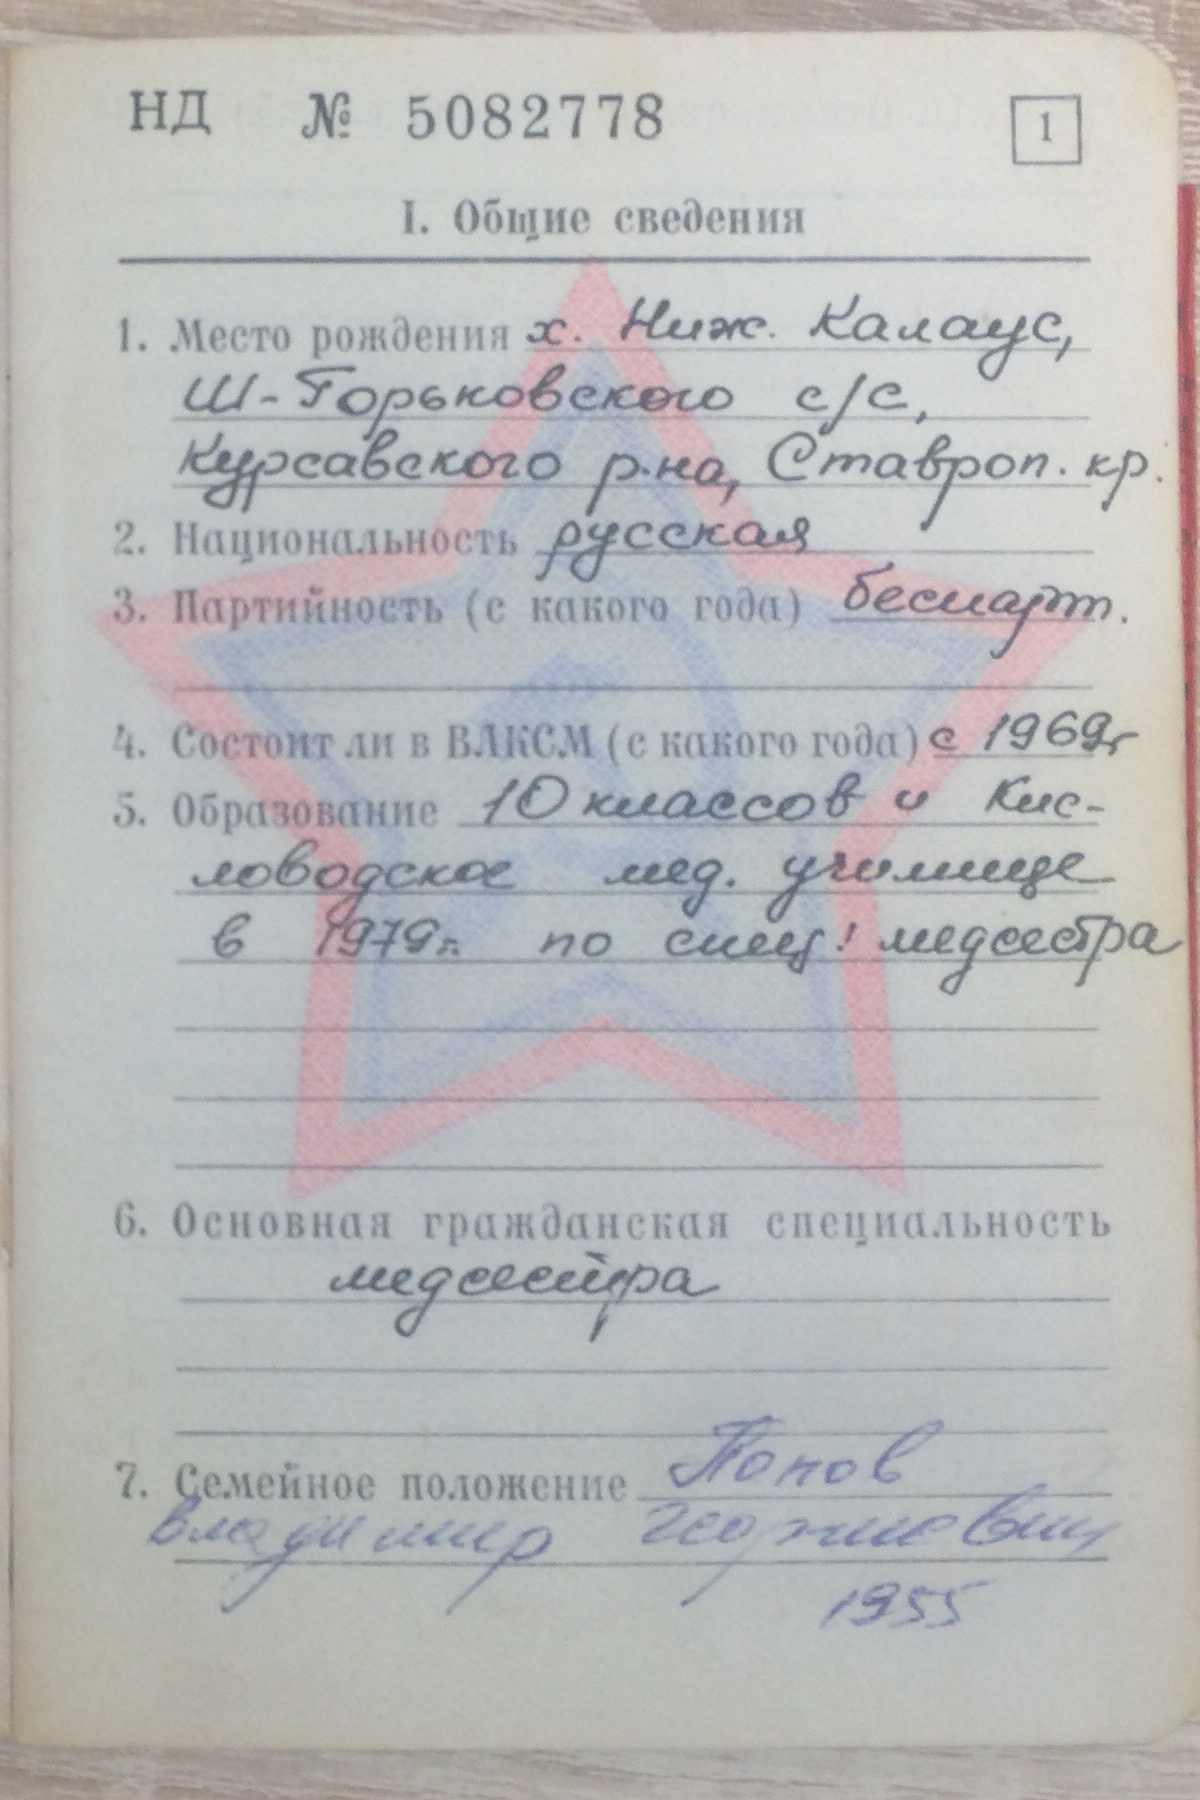 НД № 5082778
1
I. Общие сведения
1. Место рождения х. Ниж. Калаус,
Ш-Горьковского с/с,
Курсавского р-на, Ставроп. кр.
2. Национальность русская
3. Партийность (с какого года) беспарт.
4. Состоит ли в ВЛКСМ (с какого года) с 1969г
5. Образование 10 классов и Кис-
ловодское мед. училище
в 1979г. по спец: медсестра
6. Основная гражданская специальность
медсестра
7. Семейное положение Попов
Владимир Георгиевич
1955